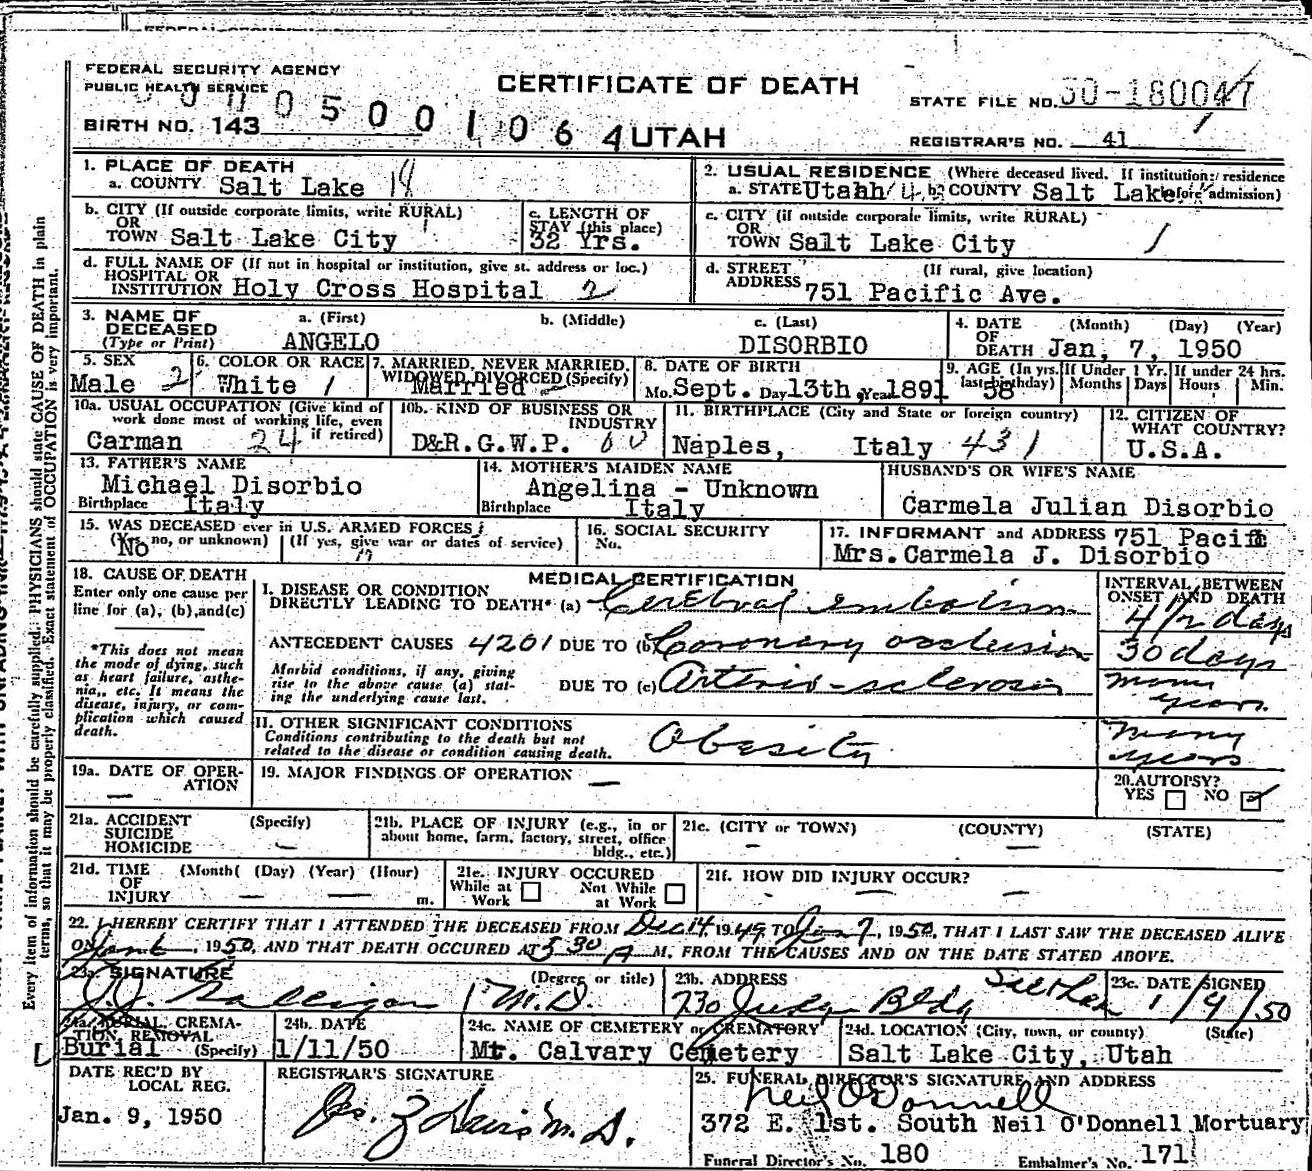 FEDERAL SECURITY AGENCY
PUBLIC HEALTH SERVICE
CERTIFICATE OF DEATH
STATE FILE NO. 50-180047
BIRTH NO. 143
0 0 0 5 0 0 1 0 6 4 UTAH
REGISTRAR'S NO. 41
1. PLACE OF DEATH
a. COUNTY Salt Lake 18
2. USUAL RESIDENCE (Where deceased lived. If institution: residence before admission)
a. STATE Utah b. COUNTY Salt Lake
b. CITY (If outside corporate limits, write RURAL)
OR
TOWN Salt Lake City
c. LENGTH OF STAY (this place)
32 Yrs.
c. CITY (if outside corporate limits, write RURAL)
OR
TOWN Salt Lake City
d. FULL NAME OF (If not in hospital or institution, give st. address or loc.)
HOSPITAL OR
INSTITUTION Holy Cross Hospital 2
d. STREET (If rural, give location)
ADDRESS 751 Pacific Ave.
3. NAME OF DECEASED
(Type or Print)
a. (First) b. (Middle) c. (Last)
ANGELO DISORBIO
4. DATE OF DEATH (Month) (Day) (Year)
Jan, 7, 1950
5. SEX
Male 2
6. COLOR OR RACE
White 1
7. MARRIED, NEVER MARRIED, WIDOWED, DIVORCED (Specify)
Married
8. DATE OF BIRTH
Mo. Sept. Day 13th, Year 1891
9. AGE (In yrs. last birthday) If Under 1 Yr. If under 24 hrs.
58 Months Days Hours Min.
10a. USUAL OCCUPATION (Give kind of work done most of working life, even if retired)
Carman 24
10b. KIND OF BUSINESS OR INDUSTRY
D&R.G.W.P. 60
11. BIRTHPLACE (City and State or foreign country)
Naples, Italy 431
12. CITIZEN OF WHAT COUNTRY?
U.S.A.
13. FATHER'S NAME
Michael Disorbio
Birthplace Italy
14. MOTHER'S MAIDEN NAME
Angelina - Unknown
Birthplace Italy
HUSBAND'S OR WIFE'S NAME
Carmela Julian Disorbio
15. WAS DECEASED ever in U.S. ARMED FORCES?
(Yes, no, or unknown) (If yes, give war or dates of service)
No
16. SOCIAL SECURITY
No.
17. INFORMANT and ADDRESS 751 Pacific
Mrs. Carmela J. Disorbio
18. CAUSE OF DEATH
Enter only one cause per line for (a), (b), and (c)
*This does not mean the mode of dying, such as heart failure, asthenia, etc. It means the disease, injury, or complication which caused death.
MEDICAL CERTIFICATION
I. DISEASE OR CONDITION
DIRECTLY LEADING TO DEATH* (a) Cerebral embolism
INTERVAL BETWEEN ONSET AND DEATH
4 1/2 days
ANTECEDENT CAUSES 4201 DUE TO (b) Coronary occlusion
30 days
Morbid conditions, if any, giving rise to the above cause (a) stating the underlying cause last.
DUE TO (c) Arterio-sclerosis
many years
II. OTHER SIGNIFICANT CONDITIONS
Conditions contributing to the death but not related to the disease or condition causing death.
Obesity
many years
19a. DATE OF OPERATION
—
19. MAJOR FINDINGS OF OPERATION —
20. AUTOPSY?
YES NO
21a. ACCIDENT (Specify)
SUICIDE
HOMICIDE —
21b. PLACE OF INJURY (e.g., in or about home, farm, factory, street, office bldg., etc.)
21c. (CITY or TOWN) (COUNTY) (STATE)
21d. TIME OF INJURY (Month) (Day) (Year) (Hour) m.
21e. INJURY OCCURED
While at Work Not While at Work
21f. HOW DID INJURY OCCUR?
22. I HEREBY CERTIFY THAT I ATTENDED THE DECEASED FROM Dec 14 1949, TO Jan 7, 1950, THAT I LAST SAW THE DECEASED ALIVE
ON Jan 6 1950, AND THAT DEATH OCCURED AT 5 30 A M. FROM THE CAUSES AND ON THE DATE STATED ABOVE.
23a. SIGNATURE (Degree or title)
Galligan M.D.
23b. ADDRESS
730 Judge Bldg
23c. DATE SIGNED
24a. BURIAL, CREMATION, REMOVAL (Specify)
Burial
24b. DATE
1/11/50
24c. NAME OF CEMETERY or CREMATORY
Mt. Calvary Cemetery
24d. LOCATION (City, town, or county) (State)
Salt Lake City, Utah
DATE REC'D BY LOCAL REG.
Jan. 9, 1950
REGISTRAR'S SIGNATURE
M.D.
25. FUNERAL DIRECTOR'S SIGNATURE AND ADDRESS
Neil O'Donnell
372 E. 1st. South Neil O'Donnell Mortuary
Funeral Director's No. 180 Embalmer's No. 171
Every item of information should be carefully supplied. PHYSICIANS should state CAUSE OF DEATH in plain
terms, so that it may be properly classified. Exact statement of OCCUPATION is very important.